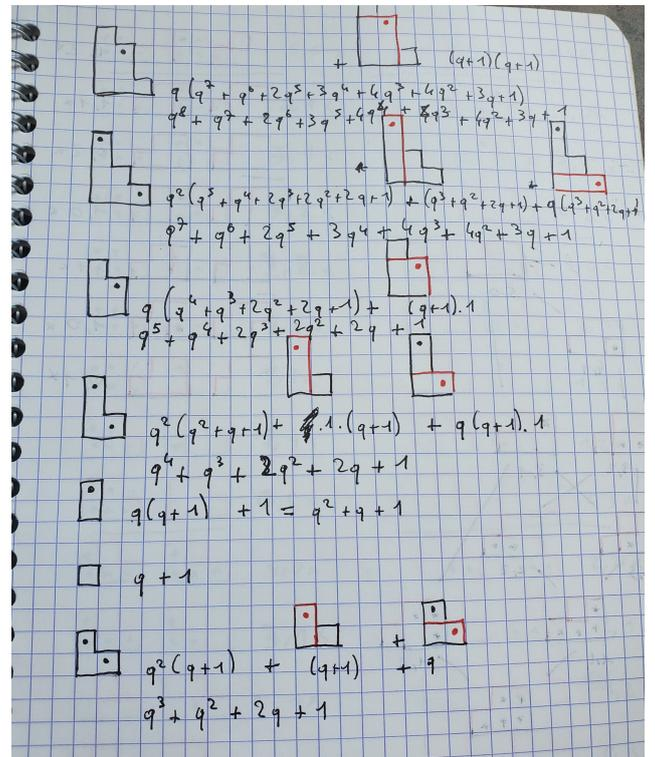 + (q+1)(q+1)
q(q⁷ + q⁶ + 2q⁵ + 3q⁴ + 4q³ + 4q² + 3q + 1)
q⁸ + q⁷ + 2q⁶ + 3q⁵ + 4q⁴ + q³ + 4q² + 3q + 1
+ +
q²(q⁵ + q⁴ + 2q³ + 2q² + 2q + 1) + (q³ + q² + 2q + 1) + q(q³ + q² + 2q + 1)
q⁷ + q⁶ + 2q⁵ + 3q⁴ + 4q³ + 4q² + 3q + 1
q(q⁴ + q³ + 2q² + 2q + 1) + (q+1).1
q⁵ + q⁴ + 2q³ + 2q² + 2q + 1
q²(q² + q + 1) + .1.(q+1) + q(q+1).1
q⁴ + q³ + 2q² + 2q + 1
q(q+1) + 1 = q² + q + 1
q + 1
+
q²(q+1) + (q+1) + q
q³ + q² + 2q + 1